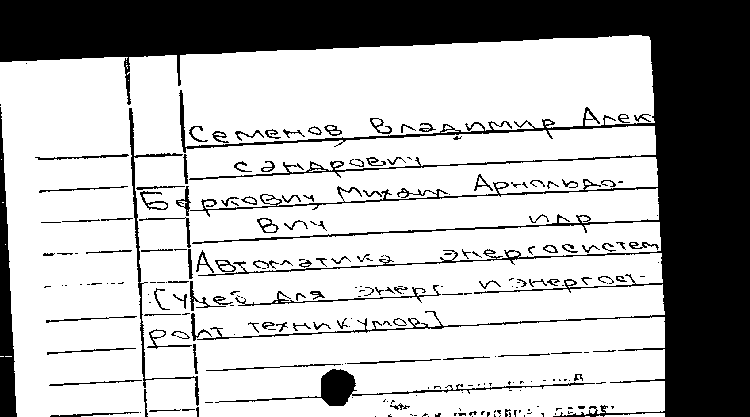 Семенов, Владимир Алек
сандрович
Беркович, Михаил Арнольдо-
вич и др
Автоматика энергосистем
[учеб для энерг и энергост-
роит. техникумов]